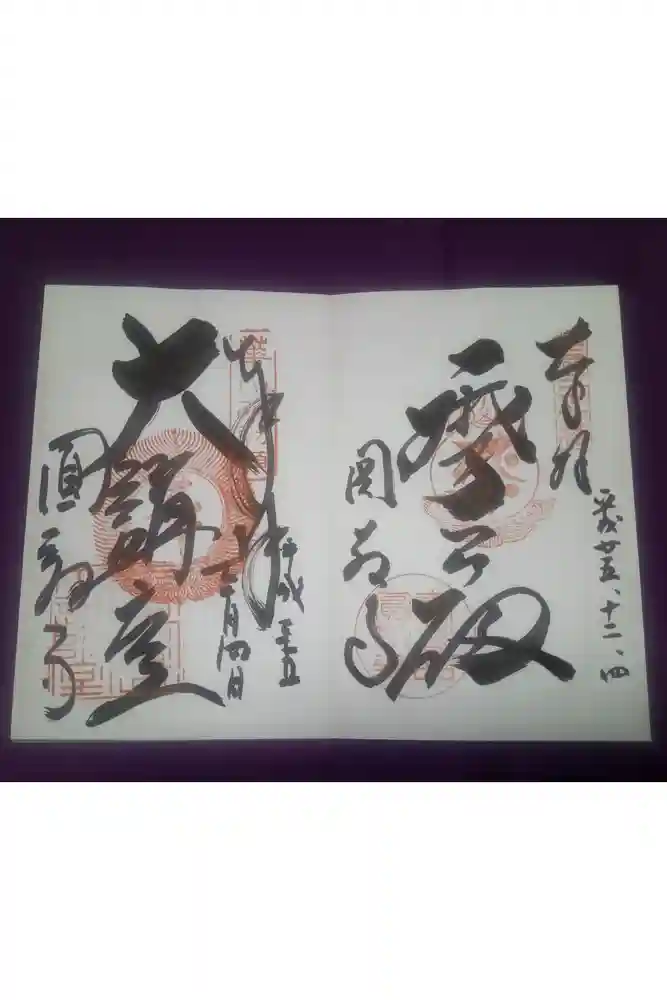 奉拝
平成廿五、十二、四
摩尼殿
圓教寺
奉拝
平成二十五
十二月四日
大講堂
圓教寺